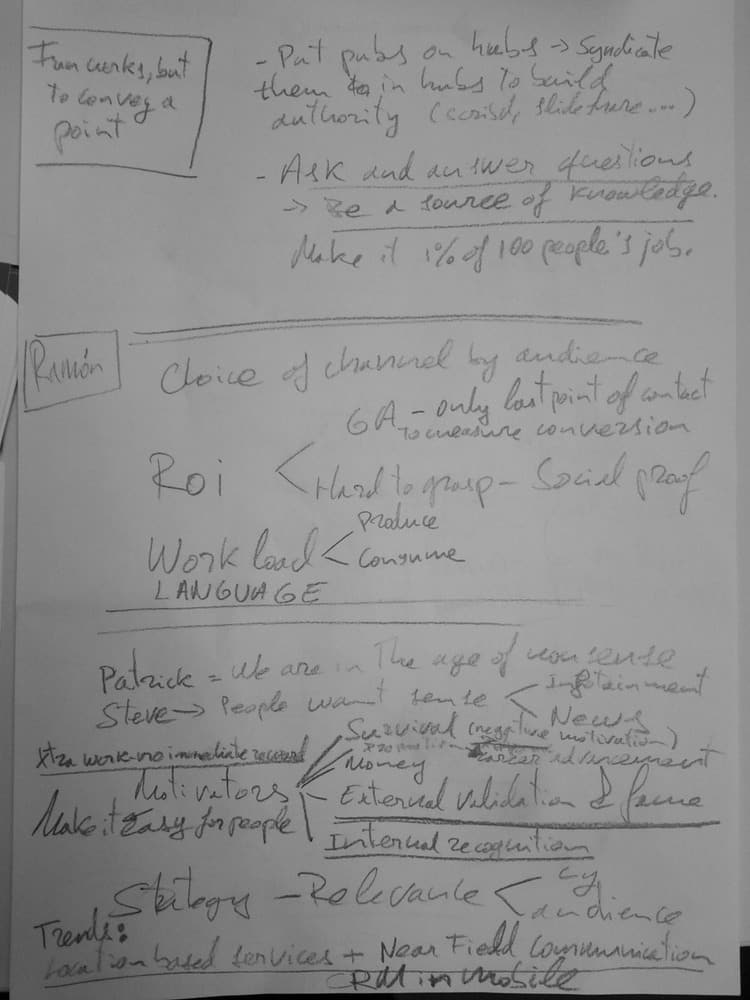 Fun works, but
to convey a
point
- Put pubs on hubs → Syndicate
them in hubs to build
authority (scrisd, slideshare....)
- Ask and answer questions
→ Be a source of knowledge.
Make it 1% of 100 people's job.
Ramón
Choice of channel by audience
GA - only last point of contact
to measure conversion
Roi < Hard to grasp - Social proof
Work load < produce
consume
LANGUAGE
Patrick = We are in The age of nonsense
Steve → People want sense < Infotainment
News
Xtra work-no immediate reward
Survival (negative motivation)
Money
career advancement
Motivators
External validation & fame
Make it Easy for people
Internal recognition
Strategy - Relevance < by
audience
Trends:
Location based services + Near Field Communication
CRM in mobile